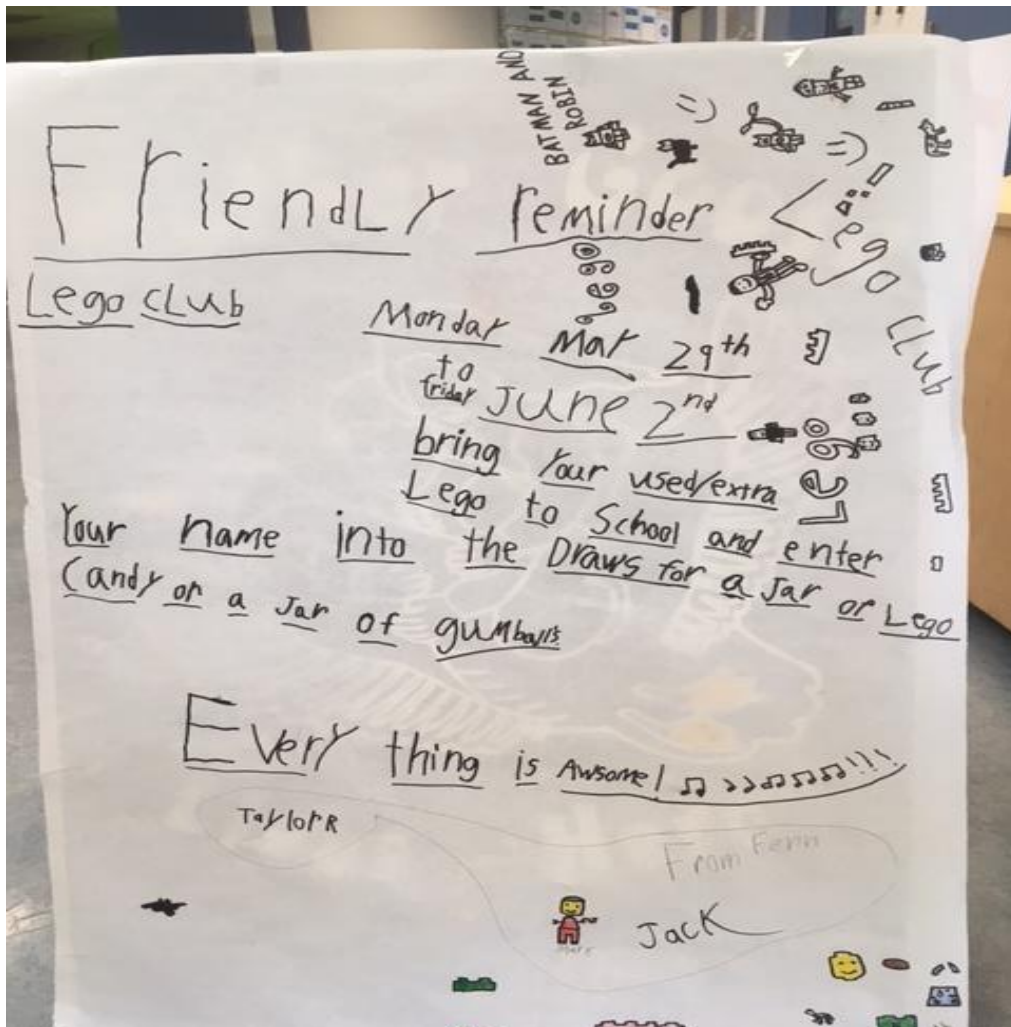 BATMAN AND
ROBIN
=)
=)
FriendLy reminder
Lego
Club
Lego
Lego CLub
Monday May 29th
to
friday June 2nd
Lego
bring Your used/extra
Lego to School and enter
Your name into the Draws for a Jar or Lego
Candy or a Jar of gumballs
Every thing is Awsome!
TaylorR
From Fenn
Jack